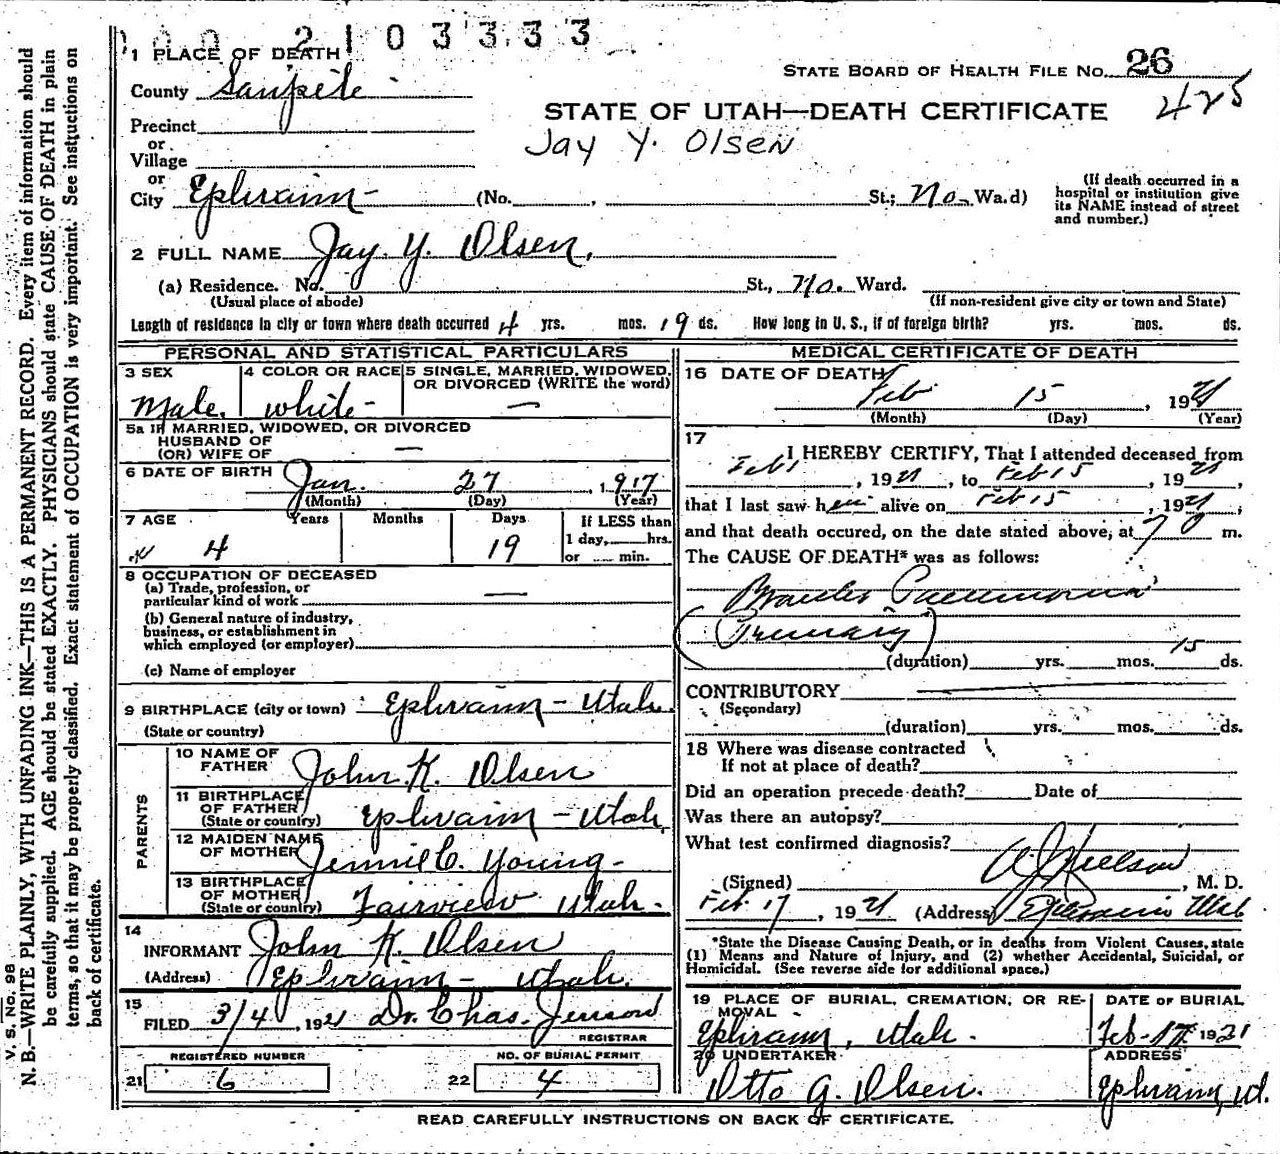 2103333
1 PLACE OF DEATH
STATE BOARD OF HEALTH FILE NO. 26
County Sanpete
425
STATE OF UTAH—DEATH CERTIFICATE
Precinct
Jay Y. Olsen
or
Village
or
City Ephraim (No. , St.; No. Wa.d)
(If death occurred in a hospital or institution give its NAME instead of street and number.)
2 FULL NAME Jay. Y. Olsen,
(a) Residence. No. St., No. Ward.
(Usual place of abode)
(If non-resident give city or town and State)
Length of residence in city or town where death occurred 4 yrs. mos. 19 ds. How long in U. S., if of foreign birth? yrs. mos. ds.
PERSONAL AND STATISTICAL PARTICULARS
3 SEX
Male.
4 COLOR OR RACE
white
5 SINGLE, MARRIED, WIDOWED, OR DIVORCED (WRITE the word)
—
5a IF MARRIED, WIDOWED, OR DIVORCED
HUSBAND OF
(OR) WIFE OF —
6 DATE OF BIRTH Jan. 27, 1917
(Month) (Day) (Year)
7 AGE Years Months Days
4 19
If LESS than
1 day, hrs.
or min.
8 OCCUPATION OF DECEASED
(a) Trade, profession, or
particular kind of work —
(b) General nature of industry,
business, or establishment in
which employed (or employer)
(c) Name of employer
9 BIRTHPLACE (city or town) Ephraim – Utah.
(State or country)
PARENTS
10 NAME OF FATHER John K. Olsen
11 BIRTHPLACE OF FATHER Ephraim – Utah.
(State or country)
12 MAIDEN NAME OF MOTHER Jennie C. Young
13 BIRTHPLACE OF MOTHER Fairview Utah.
(State or country)
14
INFORMANT John K. Olsen
(Address) Ephraim – Utah.
15
FILED 3/4, 1921 Dr. Chas. Jenson
REGISTRAR
REGISTERED NUMBER
21 6
NO. OF BURIAL PERMIT
22 4
MEDICAL CERTIFICATE OF DEATH
16 DATE OF DEATH
Feb 15, 1921
(Month) (Day) (Year)
17
I HEREBY CERTIFY, That I attended deceased from
Feb 1, 1921, to Feb 15, 1921,
that I last saw him alive on Feb 15, 1921,
and that death occured, on the date stated above, at 7 m.
The CAUSE OF DEATH* was as follows:
Broncho Pneumonia
(Primary)
(duration) yrs. mos. 15 ds.
CONTRIBUTORY
(Secondary)
(duration) yrs. mos. ds.
18 Where was disease contracted
If not at place of death?
Did an operation precede death? Date of
Was there an autopsy?
What test confirmed diagnosis?
(Signed) A J Nielson, M. D.
Feb 17, 1921 (Address) Ephraim Utah
*State the Disease Causing Death, or in deaths from Violent Causes, state
(1) Means and Nature of Injury, and (2) whether Accidental, Suicidal, or
Homicidal. (See reverse side for additional space.)
19 PLACE OF BURIAL, CREMATION, OR REMOVAL
Ephraim, Utah.
DATE OF BURIAL
Feb-17, 1921
20 UNDERTAKER
Otto G. Olsen.
ADDRESS
Ephraim, Ut.
READ CAREFULLY INSTRUCTIONS ON BACK OF CERTIFICATE.
V. S. No. 98
N. B.—WRITE PLAINLY, WITH UNFADING INK—THIS IS A PERMANENT RECORD. Every item of information should
be carefully supplied. AGE should be stated EXACTLY. PHYSICIANS should state CAUSE OF DEATH in plain
terms, so that it may be properly classified. Exact statement of OCCUPATION is very important. See instructions on
back of certificate.